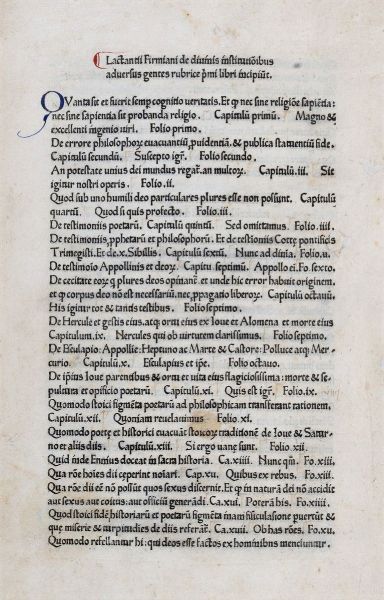 Lactantii Firmiani de diuinis institutiõibus
aduersus gentes rubrice p̃mi libri incipiũt.
QVanta sit et fuerit semp cognitio ueritatis. Et ꝙ nec sine religiõe sapiẽtia:
nec sine sapientia sit probanda religio. Capitulũ primũ. Magno &
excellenti ingenio uiri. Folio primo.
De errore philosophoꝝ euacuantiũ, puidentiã. & publica statuentiũ fide.
Capitulũ secundũ. Suscepto igr̃. Folio secundo.
An potestate unius dei mundus regat᷑ an multoꝝ. Capitulũ .iii. Sit
igitur nostri operis. Folio .ii.
Quod sub uno humili deo particulares plures esse non possunt. Capitulũ
quartũ. Quod si quis profecto. Folio .iii.
De testimoniis poetarũ. Capitulũ quintũ. Sed omittamus. Folio .iiii.
De testimoniis, ꝓphetarũ et philosophorũ. Et de testioniis Cotte pontificis
Trimegisti. Et de .x. Sibillis. Capitulũ sextũ. Nunc ad diuina. Folio .u.
De testimoio Appollinis et deoꝝ. Capitu septimũ. Appollo ei. Fo. sexto.
De cecitate eoꝝ ꝙ plures deos opinanť et unde hic error habuit originem.
et ꝙ corpus deo nõ est necessariũ, nec, ꝓpagatio liberoꝝ. Capitulũ octauũ.
His igitur tot & tantis testibus. Folio septimo.
De Hercule et gestis eius. atꝙ ortu eius ex Ioue et Alomena et morte eius
Capitulum .ix. Hercules qui ob uirtutem clarissimus. Folio septimo.
De Esculapio: Appollie: Neptuno ac Marte & Castore: Polluce atꝙ Mer-
curio. Capitulũ .x. Esculapius et ip̃e. Folio octauo.
De ip̃ius Ioue parentibus & ortu et uita eius flagiciosissima: morte & se-
pultura et opificio poetarũ. Capitulũ .xi. Quis est igr̃. Folio .ix.
Quomodo stoici figmẽta poetarũ ad philosophicam transferant rationem.
Capitulũ .xii. Quoniam reuelauimus Folio .xi.
Quomodo poetę et historici euacuãt stoicoꝝ traditionẽ de Ioue & Satur-
no et aliis diis. Capitulũ .xiii. Si ergo uane sunt. Folio .xii.
Quid inde Ennius doceat in sacra historia. Ca .xiiii. Nunc qm̃. Fo .xiii.
Qua rõe hoies dii ceperint noiari. Cap .xu. Quibus ex rebus. Fo .xiii.
Qua rõe dii cũ nõ possũt quos sexus discernit. Et ꝙ in naturã dei nõ accidit
aut sexus aut coitus. aut officiũ generãdi. Ca .xui. Poterã his. Fo .xiiii.
Quod stoici fidẽ historiarũ et poetarũ figmẽta inani fisiculasione puertũt &
que miserie & turpitudĩes de diis referãt᷑. Ca .xuii. Ob has rões. Fo .xu.
Quomodo refellantur hi: qui deos esse factos ex hominibus menciuntur.